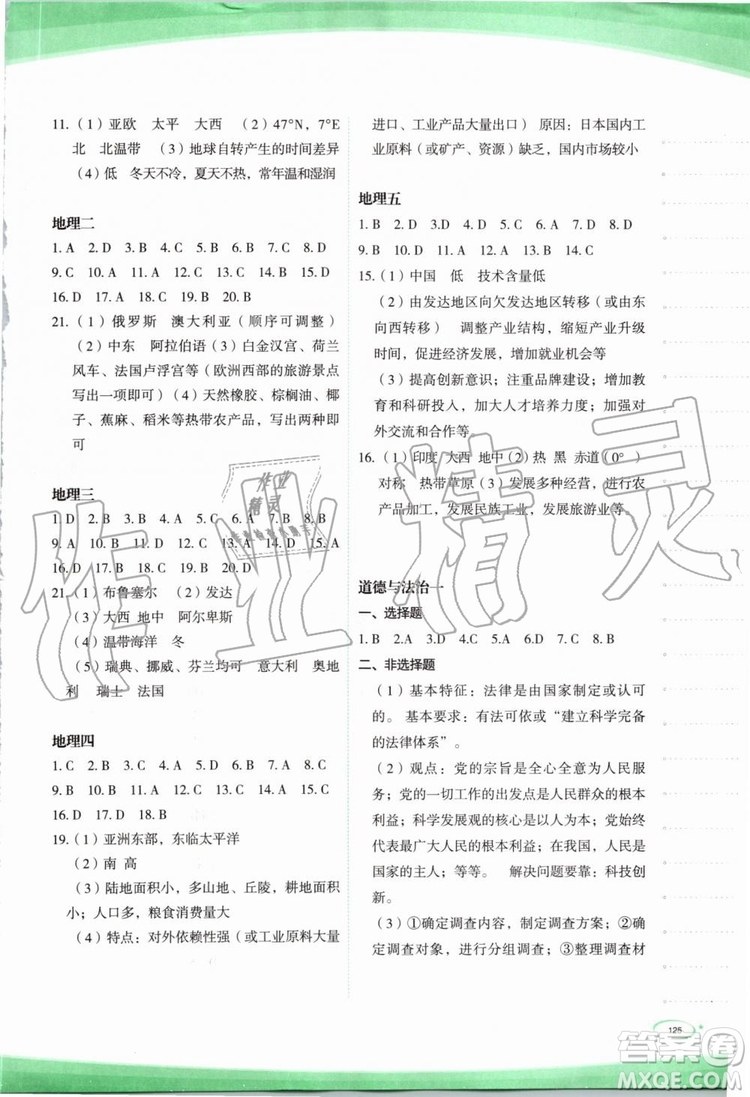 11.（1）亚欧 太平 大西 （2）47°N，7°E
北 北温带 （3）地球自转产生的时间差异
（4）低 冬天不冷，夏天不热，常年温和湿润
地理二
1. A 2. D 3. B 4. C 5. B 6. D 7. B 8. D
9. C 10. A 11. D 12. A 13. C 14. B 15. A
16. D 17. D 18. C 19. B 20. B
21.（1）俄罗斯 澳大利亚（顺序可调整）
（2）中东 阿拉伯语（3）白金汉宫、荷兰
风车、法国卢浮宫等（欧洲西部的旅游景点
写出一项即可）（4）天然橡胶、棕榈油、椰
子、蕉麻、稻米等热带农产品，写出两种即
可
地理三
1. D 2. B 3. B 4. A 5. C 6. B 7. D 8. A
9. B 10. C 11. C 12. A 13. D 14. D 15. A
16. D 17. D 18. C 19. D 20. B
21.（1）布鲁塞尔 （2）发达
（3）大西 地中 阿尔卑斯
（4）温带海洋 冬
（5）瑞典、挪威、芬兰均可 意大利 奥地
利 瑞士 法国
地理四
1. C 2. B 3. C 4. A 5. C 6. B 7. D 8. A
9. B 10. A 11. B 12. C 13. D 14. B 15. B
16. D 17. D 18. D
19.（1）亚洲东部，东临太平洋
（2）南 高
（3）陆地面积小，多山地、丘陵，耕地面积
小；人口多，粮食消费量大
（4）特点：对外依赖性强（或工业原料大量
进口、工业产品大量出口） 原因：日本国内工
业原料（或矿产、资源）缺乏，国内市场较小
地理五
1. B 2. D 3. D 4. A 5. D 6. A 7. D 8. D
9. B 10. A 11. B 12. D 13. B 14. C
15.（1）中国 低 技术含量低
（2）由发达地区向欠发达地区转移（或由东
向西转移） 调整产业结构，缩短产业升级
时间，促进经济发展，增加就业机会等
（3）提高创新意识；注重品牌建设；增加教
育和科研投入，加大人才培养力度；加强对
外交流和合作等。
16.（1）印度 大西 地中（2）热 黑 赤道（0°）
对称 热带草原（3）发展多种经营，进行农
产品加工，发展民族工业，发展旅游业等
道德与法治一
一、选择题
1. B 2.A 3.D 4.A 5.B 6.D 7.C 8.B
二、非选择题
（1）基本特征：法律是由国家制定或认可
的。 基本要求：有法可依或“建立科学完备
的法律体系”。
（2）观点：党的宗旨是全心全意为人民服
务；党一切工作的出发点是人民群众的根本
利益；科学发展观的核心是以人为本；党始终
代表最广大人民的根本利益；在我国，人民是
国家的主人；等等。 解决问题要靠：科技创
新。
（3）①确定调查内容，制定调查方案；②确
定调查对象，进行分组调查；③整理调查材
125
作业精灵
作业
精灵
答案圈
MXQE.COM